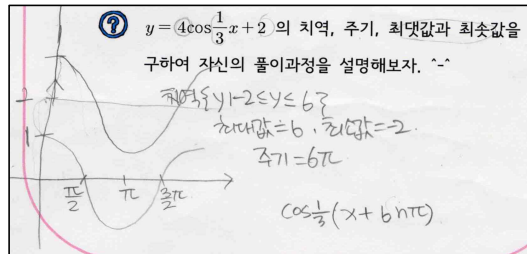 ? y = 4cos 1/3 x + 2 의 치역, 주기, 최댓값과 최솟값을
구하여 자신의 풀이과정을 설명해보자. ^-^
치역{y|-2≤y≤6}
2
최대값=6, 최소값=-2.
1
주기=6π
π/2 π 3/2π
cos 1/3 (x+6nπ)